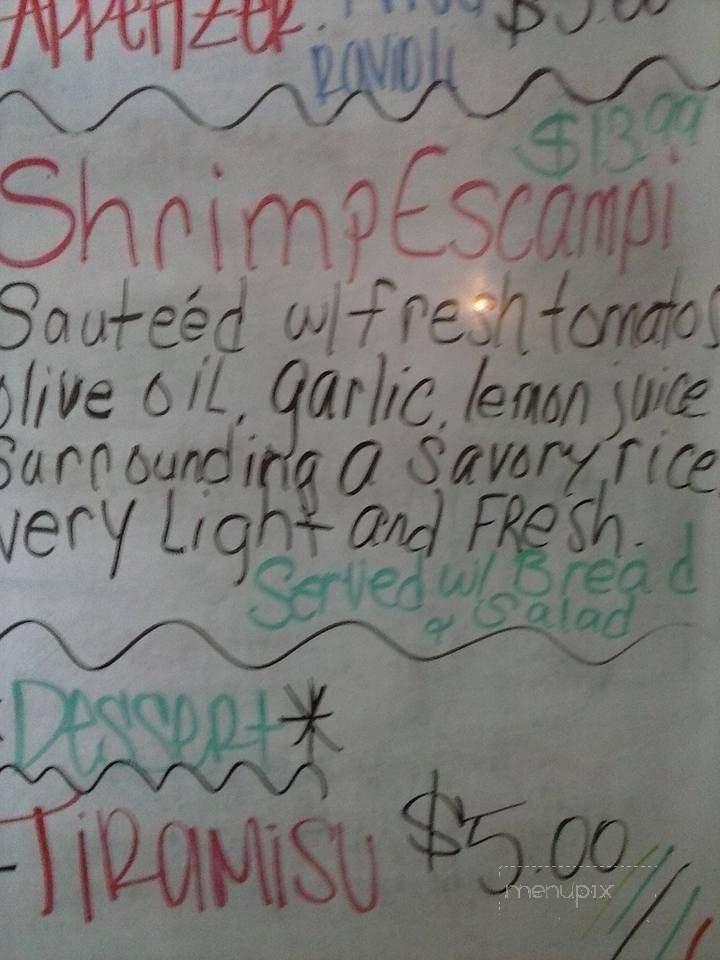 Appetizer.
Ravioli
$13.99
Shrimp Escampi
Sauteéd w/ fresh tomatos
olive oil, garlic, lemon juice
surrounding a savory, rice
very Light and Fresh.
Served w/ Bread
& Salad
Dessert*
-Tiramisu $5.00
menupix